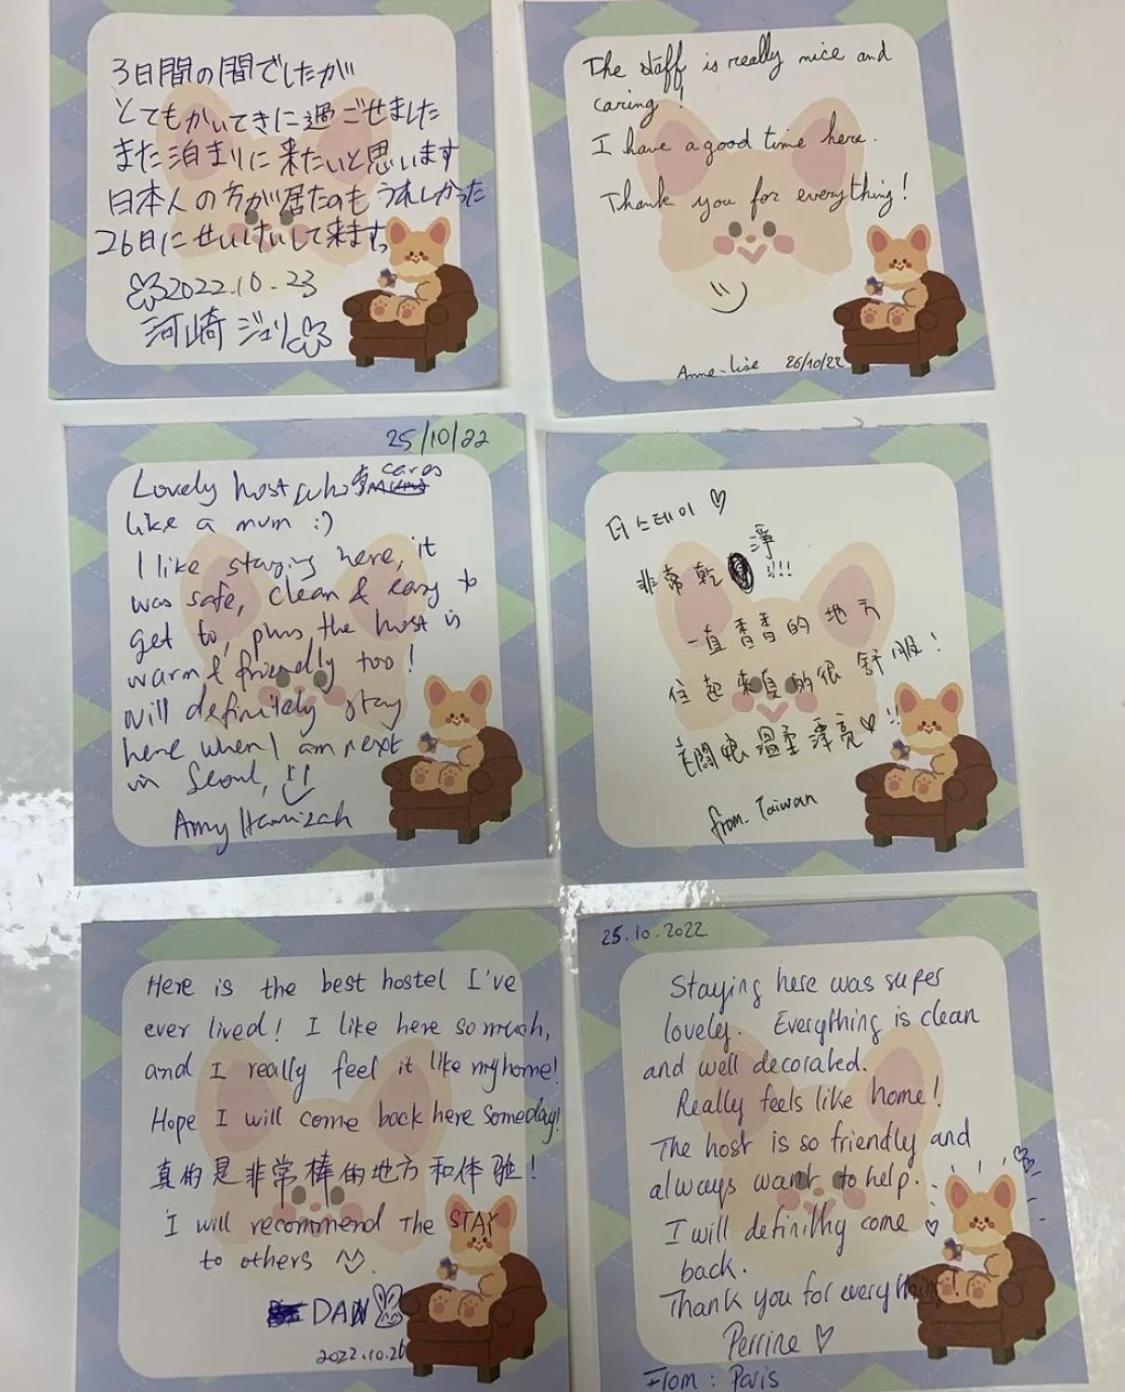 3日間の間でしたが
とてもかいてきに過ごせました
また泊まりに来たいと思います
日本人の方が居たのもうれしかった
26日にせいけいして来ます。
2022.10.23
河崎 ジュリ
The staff is really nice and
caring!
I have a good time here.
Thank you for everything!
Anne-Lise 26/10/22
25/10/22
Lovely host who cares
like a mum :)
I like staying here, it
was safe, clean & easy to
get to, plus the host is
warm & friendly too!
Will definitely stay
here when I am next
in Seoul, !!
Amy Hamizah
더스테이 ♡
非常乾淨!!!
一直香香的地方
住起來真的很舒服!
老闆娘溫柔漂亮♡!!
from. Taiwan
Here is the best hostel I've
ever lived! I like here so much,
and I really feel it like my home!
Hope I will come back here someday!
真的是非常棒的地方和体验!
I will recommend The STAY
to others
DAN
2022.10.26
25.10.2022
Staying here was super
lovely. Everything is clean
and well decorated.
Really feels like home!
The host is so friendly and
always want to help.
I will definithy come ♡
back.
Thank you for everything!
Perrine ♡
From: Paris